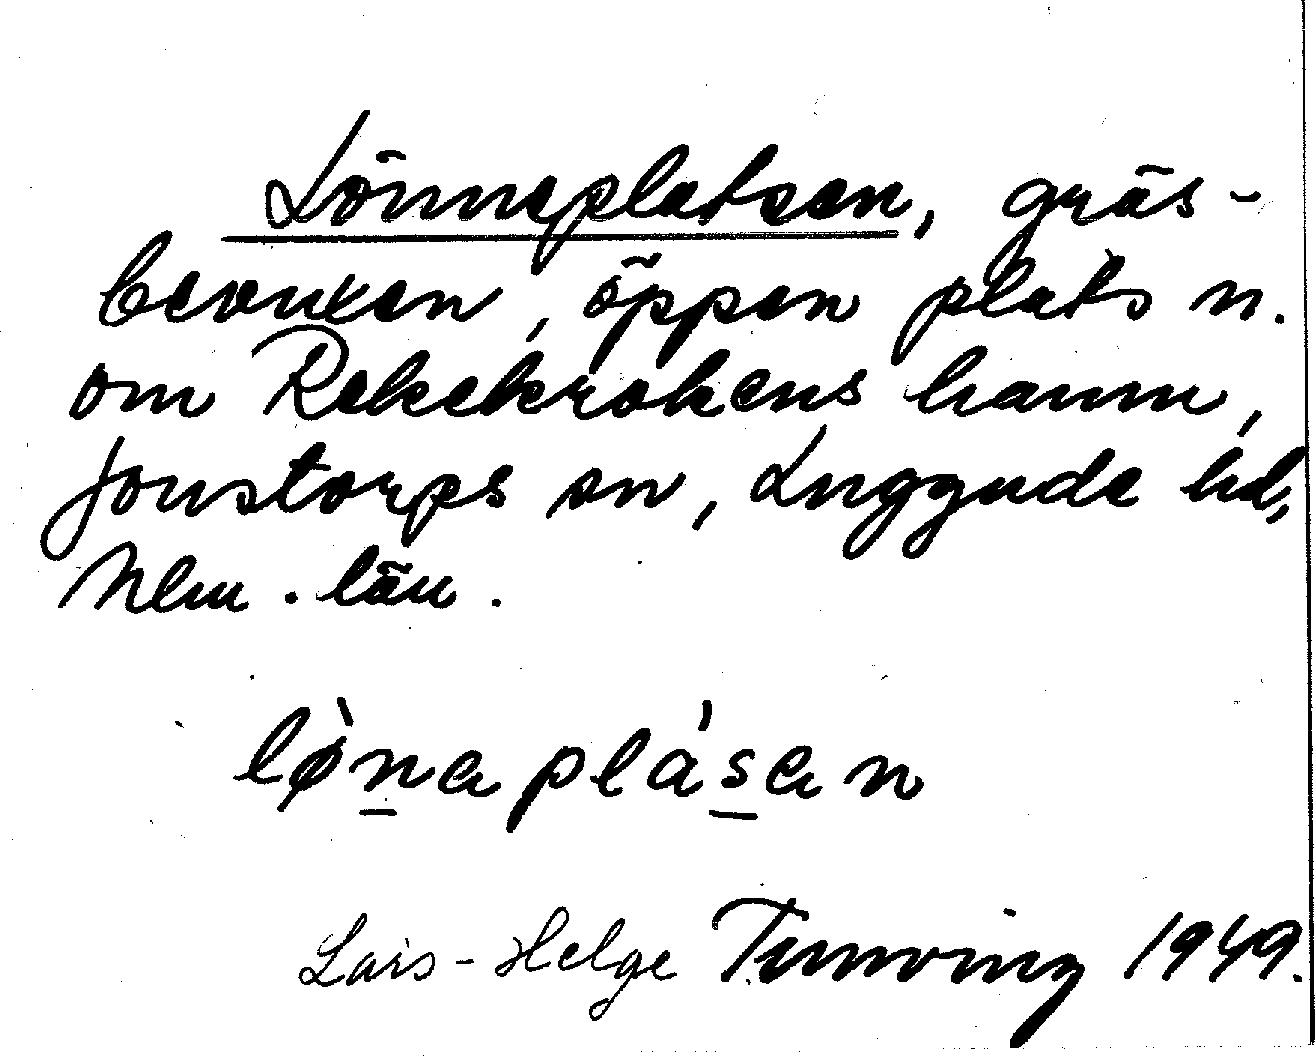 Lönneplatsen, gräs-
bevuxen, öppen plats n.
om Rekekrokens hamn,
Jonstorps sn, Luggude hd,
Mlm. län.
lø̀naplásan
Lars-Helge Tunving 1949.